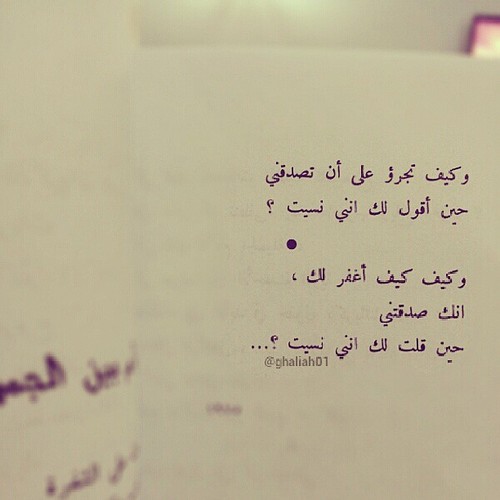 وكيف تجرؤ على أن تصدقني
حين أقول لك انني نسيت ؟
•
وكيف كيف أغفر لك ،
انك صدقتني
حين قلت لك انني نسيت ؟...
@ghaliah01